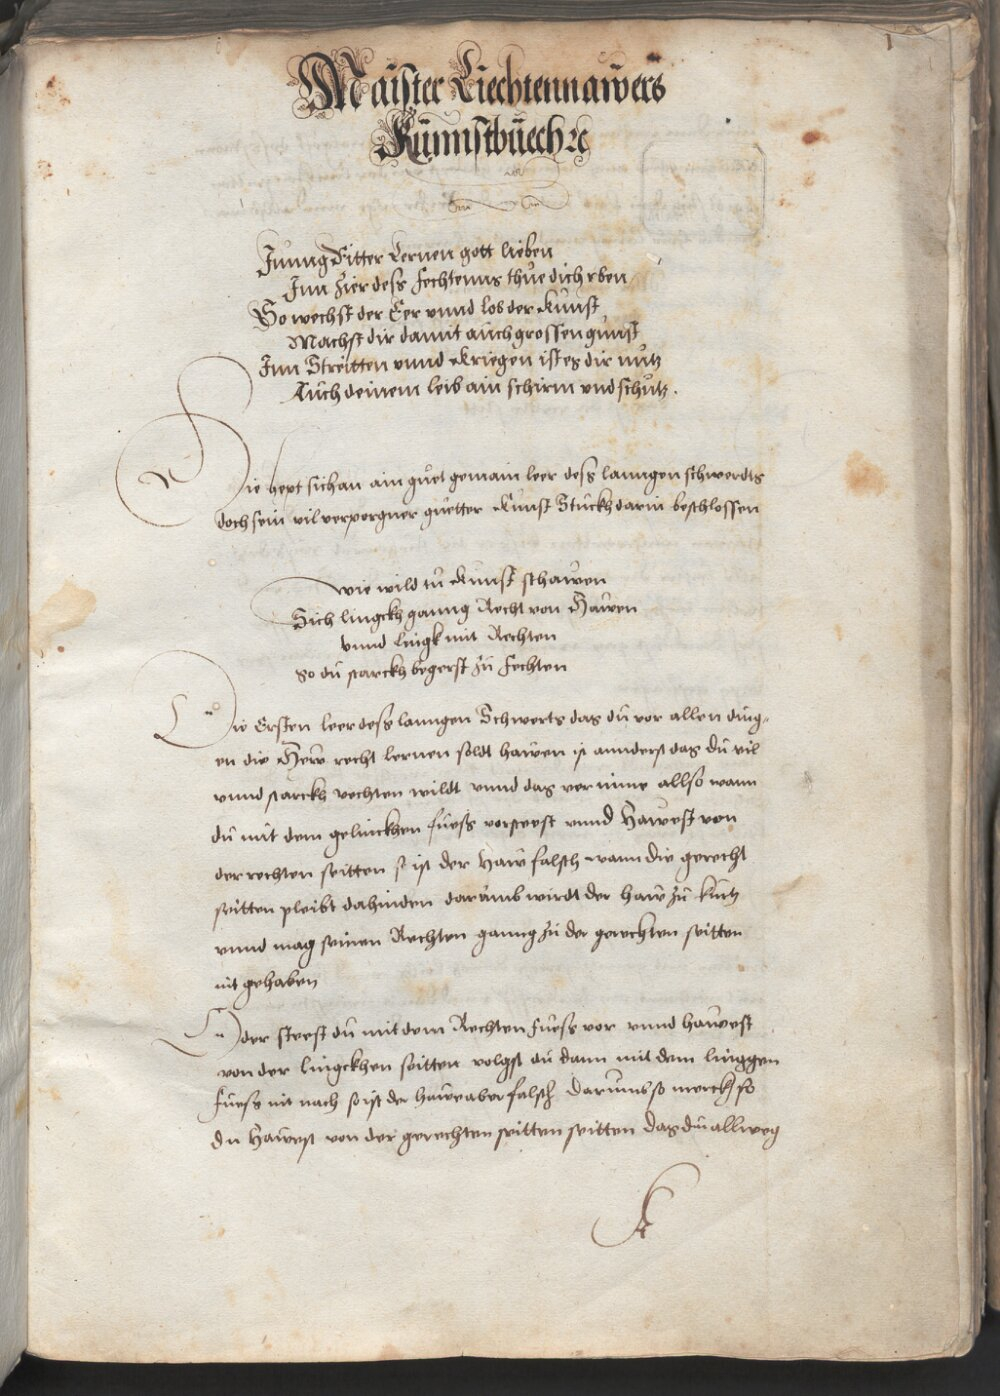 1
Maister Liechtennawers
Künnstbuech ꝛc
Jüng Ritter Lernen gott lieben
Inn Zier dess fechtenns thüe dich eben
So wechst der Eer vnnd lob der Kunst
Machst dir damit auch grossen gunst
Inn Streitten vnnd Kriegen ist es dir nutz
Auch deinem leib ain schirm vnd schutz.
Hie hept sich an ain guet gemain leer dess lanngen schwerdts
doch sein vil verporgner guetter Kunst Stuckh darin beschlossen
wie wild tu Kunst schawen
Sich lingckh ganng Recht von Hawen
vnnd lingk mit Rechten
so du starckh begerst zu fechten
Die Ersten leer dess lanngen Schwerts das du vor allen ding-
en die Hew recht lernen soldt hawen ist annderst das du vil
vnnd starckh vechten wildt vnnd das vernime allso wann
du mit dem gelinckhen fuess vorsteest vnnd Hawest von
der rechten seitten so ist der Haw falsch wann die gerecht
seitten pleibt dahinden darumb wirdt der haw zu kurtz
vnnd mag seinen Rechten ganng zu der gerechten seitten
nit gehaben
Oder steest du mit dem Rechten fuess vor vnnd hawest
von der lingckhen seitten volgst du dann mit dem linggen
fuess nit nach so ist der haw aber falsch darumb so merckh so
du Hawest von der gerechten seitten seitten das du allweg
A